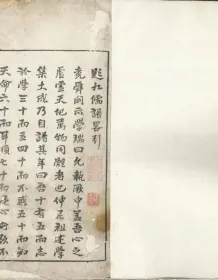 題九儒譜畧引
堯舜開示學端曰允執厥中蓋吾心之
虛靈天地萬物同體者也仲尼祖述學
集大成乃自譜其年曰吾十有五而志
於學三十而立四十而不惑五十而知
天命六十而耳順七十而從心所欲不